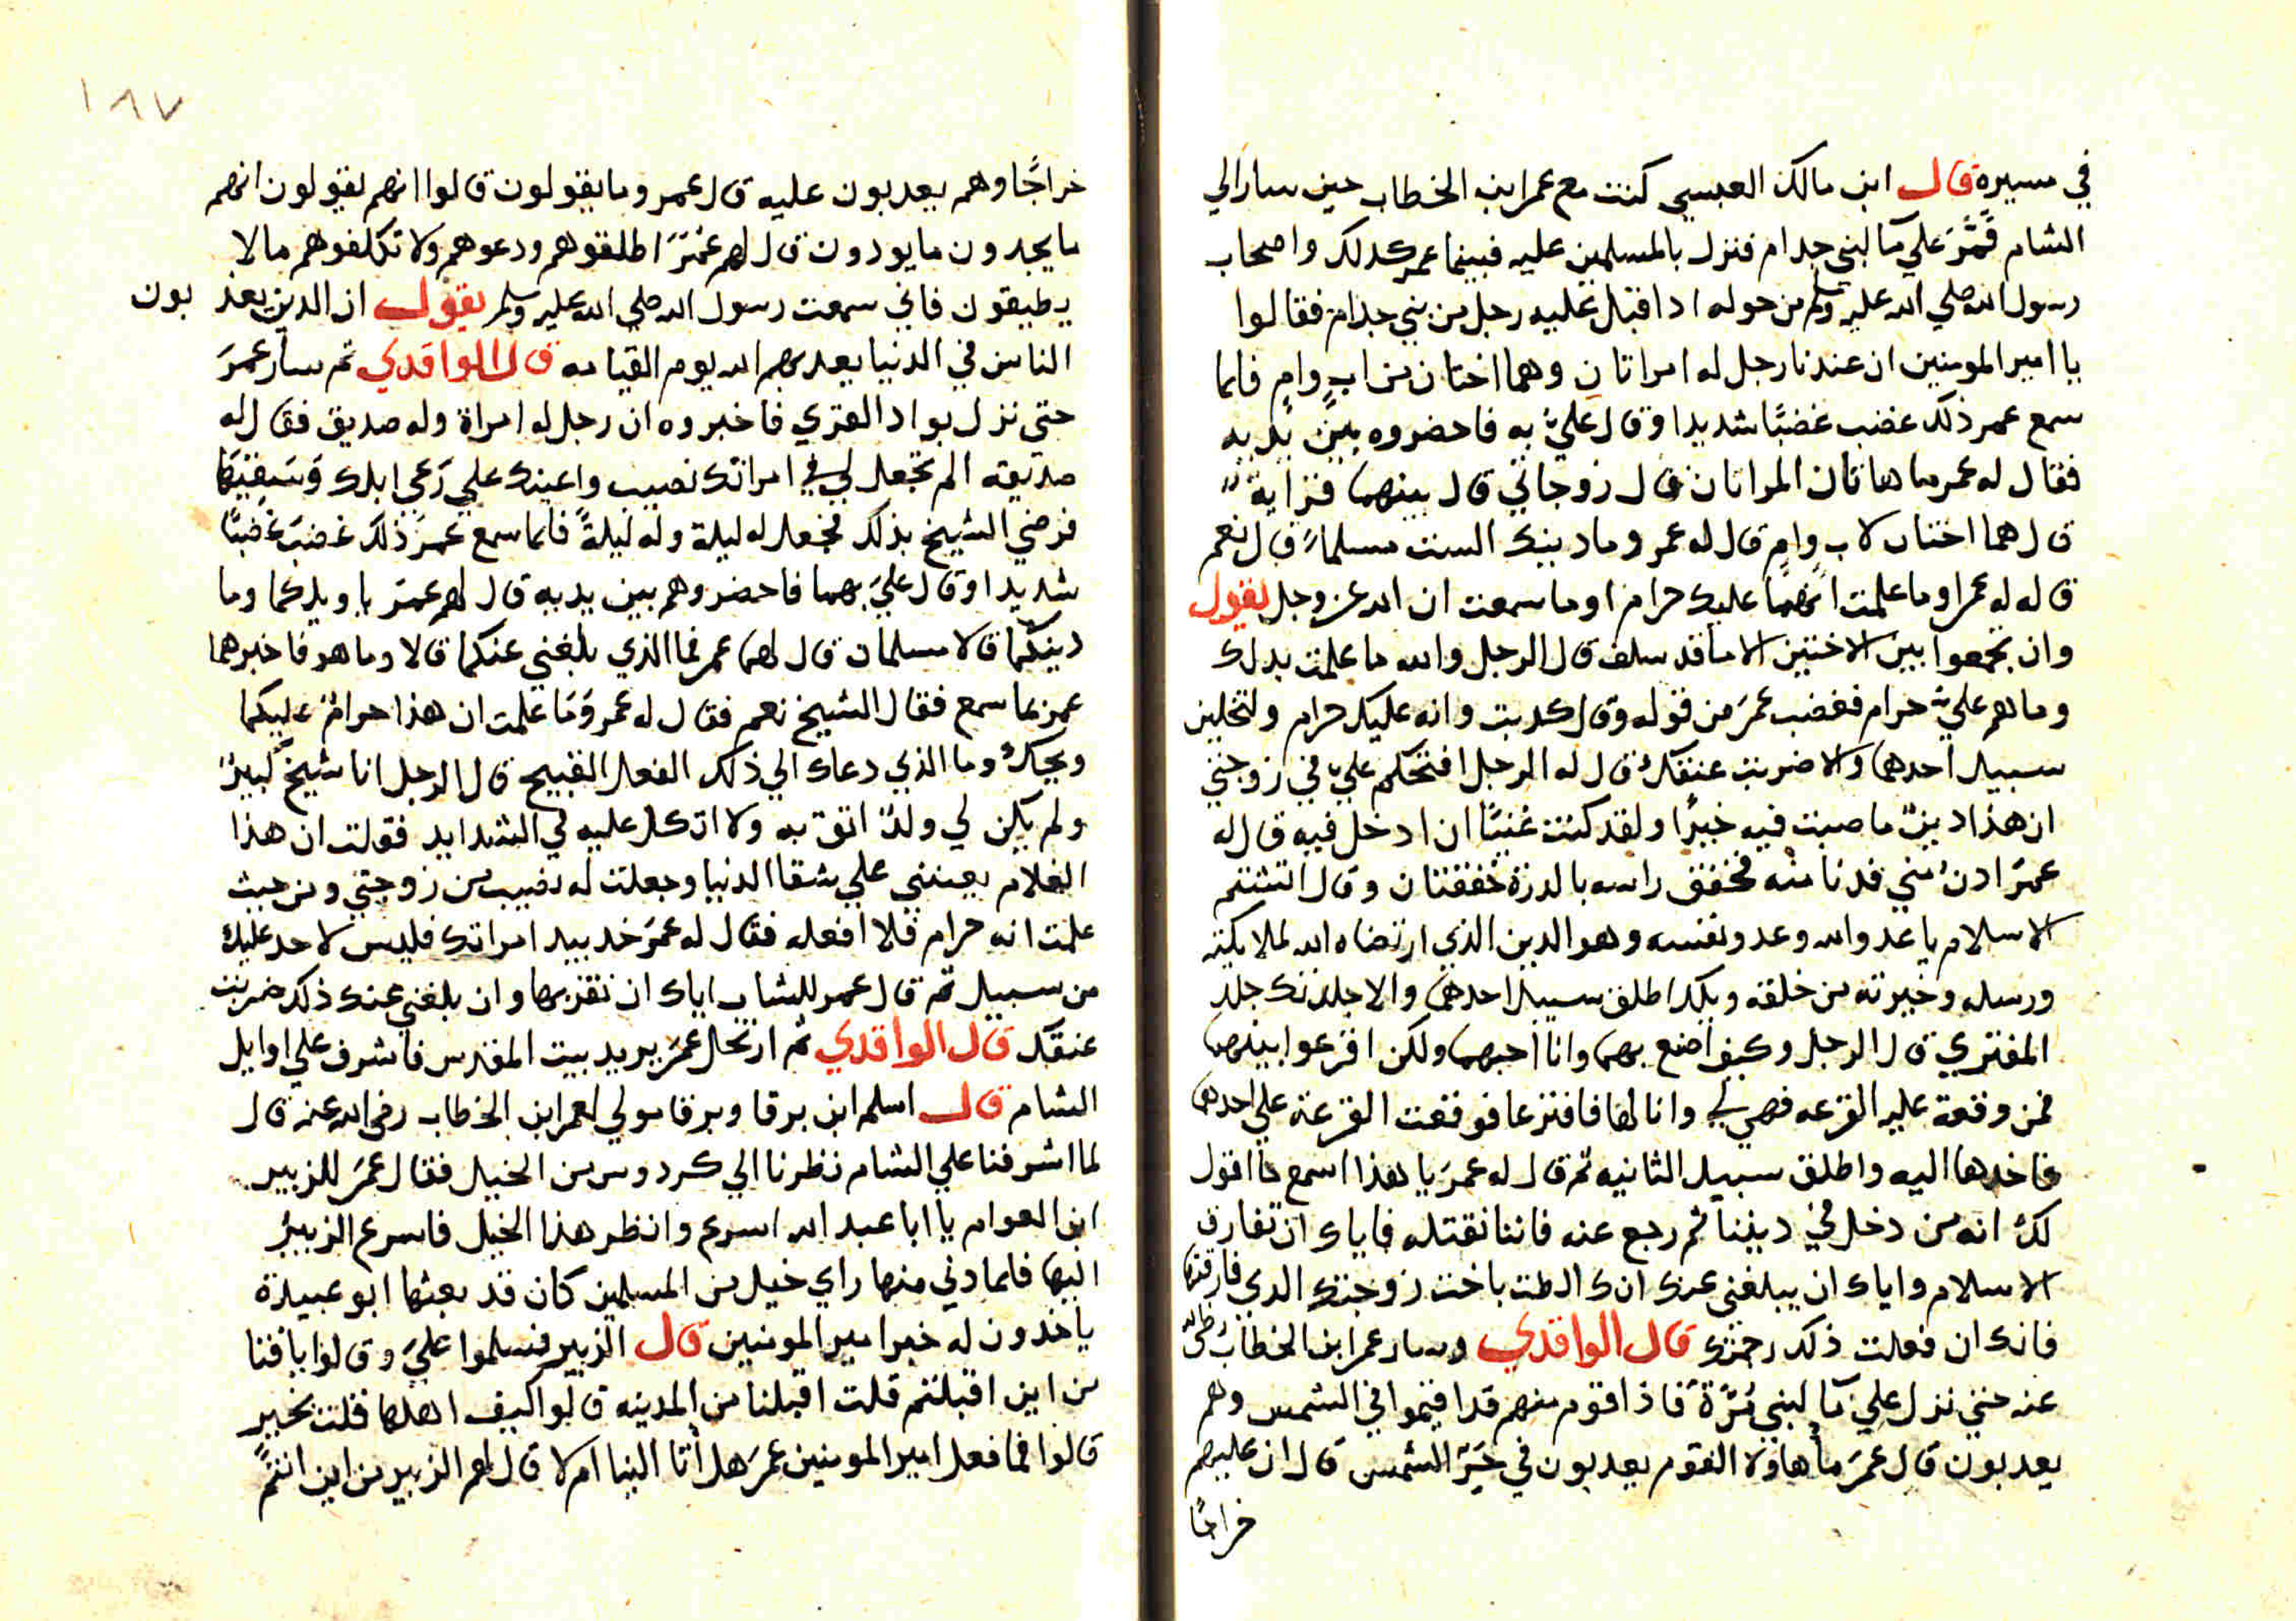 في مسيره قال ابن مالك العبسي كنت مع عمر ابن الخطاب حين سار الي
الشام فمر علي ما لبني جدام فنزل بالمسلمين عليه فبينما عمر كدلك واصحاب
رسول الله صلي الله عليه وسلم من حوله ادا اقبل عليه رجل من بني جدام فقالوا
يا امير المومنين ان عندنا رجل له امراتان وهما اختان من اب وام فلما
سمع عمر ذلك غضب غضبًا شديدا وقال عليّ به فاحضروه بين يديه
فقال له عمر ما هاتان المراتان قال زوجاتي قال بينهما قرابة
قال هما اختان لاب وام قال له عمر وما دينك الست مسلمًا قال نعم
قال له عمر اوما علمت انهما عليك حرام اوما سمعت ان الله عز وجل يقول
وان تجمعوا بين الاختين الا ما قد سلف قال الرجل والله ما علمت بدلك
وما هم عليّ حرام فغضب عمر من قوله وقال كدبت وانه عليك حرام ولتخلين
سبيل احدهما والا ضربت عنقك قال له الرجل افتحكم عليّ في زوجتي
ان هذا دين ما صبت فيه خيرًا ولقد كنت غنيًا ان ادخل فيه قال له
عمر ادن مني فدنا منه فخفق راسه بالدرة خفقتان وقال اتشتم
الاسلام يا عدو الله وعدو نفسه وهو الدين الذي ارتضاه الله لملايكته
ورسله وخيرته من خلقه ويلك اطلق سبيل احدهما والا جلدتك جلد
المفتري قال الرجل وكيف اصنع بهما وانا احبهما ولكن اقرعوا بينهما
فمن وقعة عليه القرعه فهي لي وانا لها فاقترعا فوقعت القرعة علي احدهما
فاخدها اليه واطلق سبيل الثانيه ثم قال له عمر يا هذا اسمع ما اقول
لك انه من دخل في ديننا ثم رجع عنه فاننا نقتله فاياك ان تفارق
الاسلام واياك ان يبلغني عنك انك الطت باخت زوجتك الدي فارقتها
فانك ان فعلت ذلك رجمتك قال الواقدي وسار عمر ابن الخطاب رضي الله
عنه حتي نزل علي ما لبني مُرّة فاذا قوم منهم قد اقيموا في الشمس وهم
يعدبون قال عمر ما هاولا القوم يعدبون في حر الشمس قال ان عليهم
خراجًا
١٨٧
خراجًا وهم يعدبون عليه قال عمر وما يقولون قالوا انهم يقولون انهم
ما يجدون ما يودون قال لهم عمر اطلقوهم ودعوهم ولا تكلفوهم ما لا
يطيقون فاني سمعت رسول الله صلي الله عليه وسلم يقول ان الدين يعذبون
الناس في الدنيا يعدبهم الله يوم القيامه قال الواقدي ثم سار عمر
حتي نزل بواد القري فاخبروه ان رجل له امراة وله صديق فقال له
صديقه الم تجعل لي في امراتك نصيب واعينك علي رَعي ابلك وسقيها
فرضي الشيخ بذلك فجعل له ليلة وله ليلةً فلما سمع عمر ذلك غضب غضبًا
شديدا وقال عليَ بهما فاحضروهم بين يديه قال لهم عمر يا ويلكما وما
دينكما قالا مسلمان قال لهما عمر فما الذي بلغني عنكما قالا وما هو فاخبرهما
عمر بما سمع فقال الشيخ نعم فقال له عمر وَما علمت ان هذا حرام عليكما
ويحك وما الذي دعاك الي ذلك الفعل القبيح قال الرجل انا شيخ كبير
ولم يكن لي ولدٌ اتق به ولا اتكل عليه في الشدايد فقولت ان هذا
الغلام يعينني علي شقا الدنيا وجعلت له نصيب من زوجتي ومن حيث
علمت انه حرام فلا افعله فقال له عمر خد بيد امراتك فليس لاحد عليك
من سبيل ثم قال عمر للشاب اياك ان تقربها وان بلغني عنك ذلك ضربت
عنقك قال الواقدي ثم ارتحال عمر يريد بيت المقدس فاشرف علي اوايل
الشام قال اسلم ابن برقا وبرقا مولي لعمر ابن الخطاب رضي الله عنه قال
لما اشرفنا علي الشام نظرنا الي كردوس من الخيل فقال عمر للزبير
ابن العوام يا ابا عبد الله اسرع وانظر هذا الخيل فاسرع الزبير
اليها فلما دني منها راي خيل من المسلمين كان قد بعثها ابو عبيدة
ياخدون له خبر امير المومنين قال الزبير فسلموا عليَ وقالوا يا فتا
من اين اقبلتم قلت اقبلنا من المدينه قالوا كيف اهلها قلت بخير
قالوا فما فعل امير المومنين عمر هل اتا الينا ام لا قال لهم الزبير من اين انتم